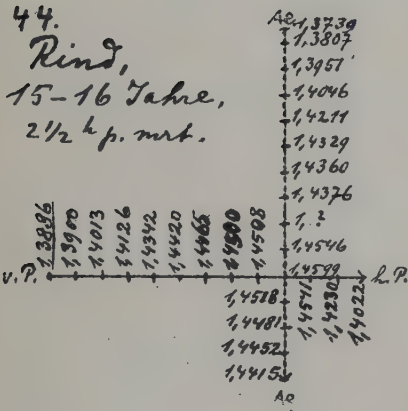 44.
Rind,
15-16 Jahre,
2 1/2 h p. mrt.
Ae. 1,3739
1,3807
1,3951
1,4046
1,4211
1,4329
1,4360
1,4376
1,.?
1,4546
1,4599
v. P.
1,3896
1,3900
1,4013
1,4126
1,4342
1,4420
1,4465
1,4500
1,4508
h. P.
1,4541
1,4230
1,4022
1,4518
1,4481
1,4452
1,4415
Ae